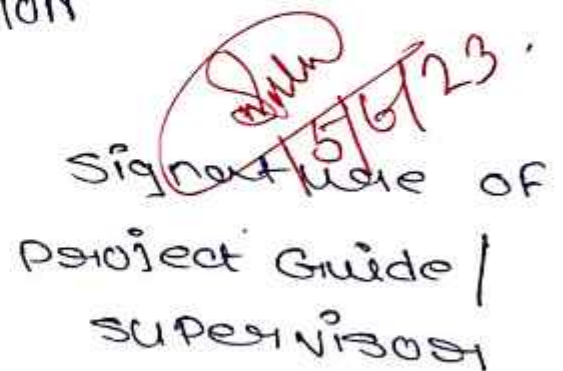 ION
15/6/23.
Signature of
Project Guide /
supervisor